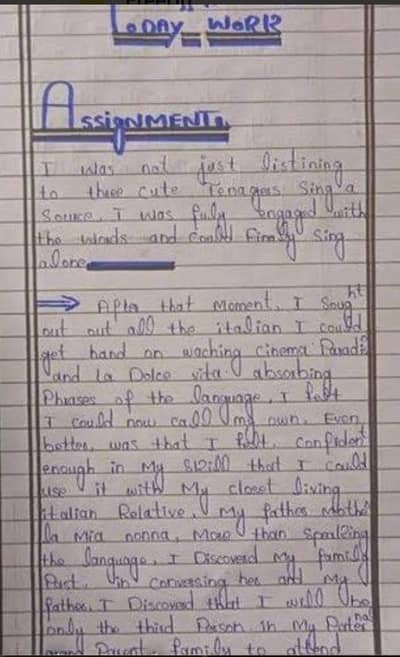 ToDAY WORK
ASSIGNMENT
I was not just listining
to three cute Tenagers Sing a
Source, I was fuly engaged with
the words and Could Finally Sing
alone
After that moment, I Sought
out out all the italian I could
get hand on waching cinema Paradi
and La Dolce vita. absorbing
Phrases of the language, I felt
I could now call my own. Even
better, was that I felt, confident
enough in My Skill that I could
use it with My closet living
italian Relative, my father Mothe
la mia nonna, More than Speaking
the language, I Discoverd My family
Past. in conversing her and My
father, I Discoverd that I will be
only the third Person in My Pater nal
Grand Parent family to attend